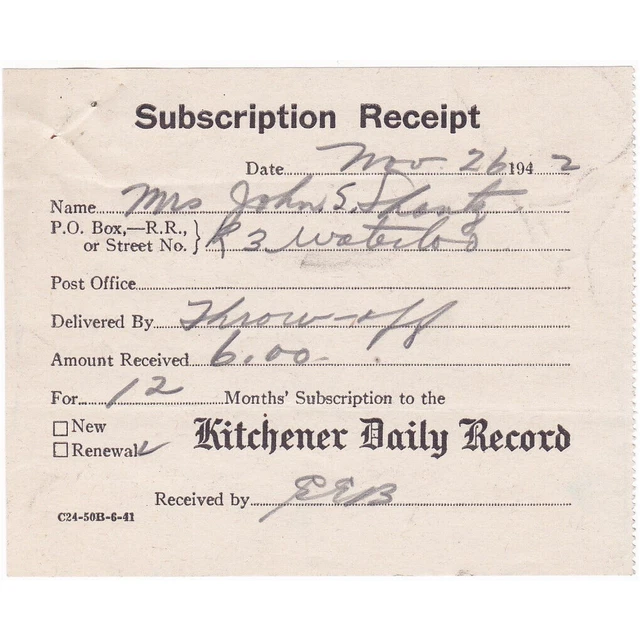 Subscription Receipt
Date Nov 26 1942
Name Mrs John S. Shantz
P.O. Box,—R.R., or Street No. } R 3 Waterloo
Post Office
Delivered By Throw-off
Amount Received 6.00
For 12 Months' Subscription to the
☐ New
☐ Renewal ✓ Kitchener Daily Record
Received by EEB
C24-50B-6-41